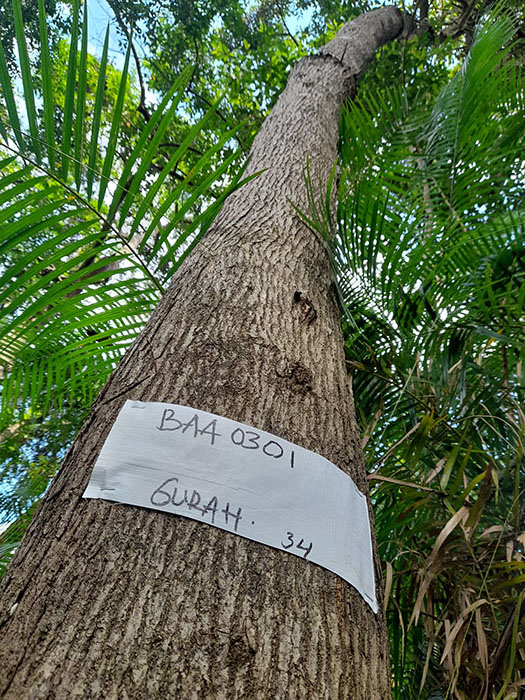 BAA 0301
GURAH.
34